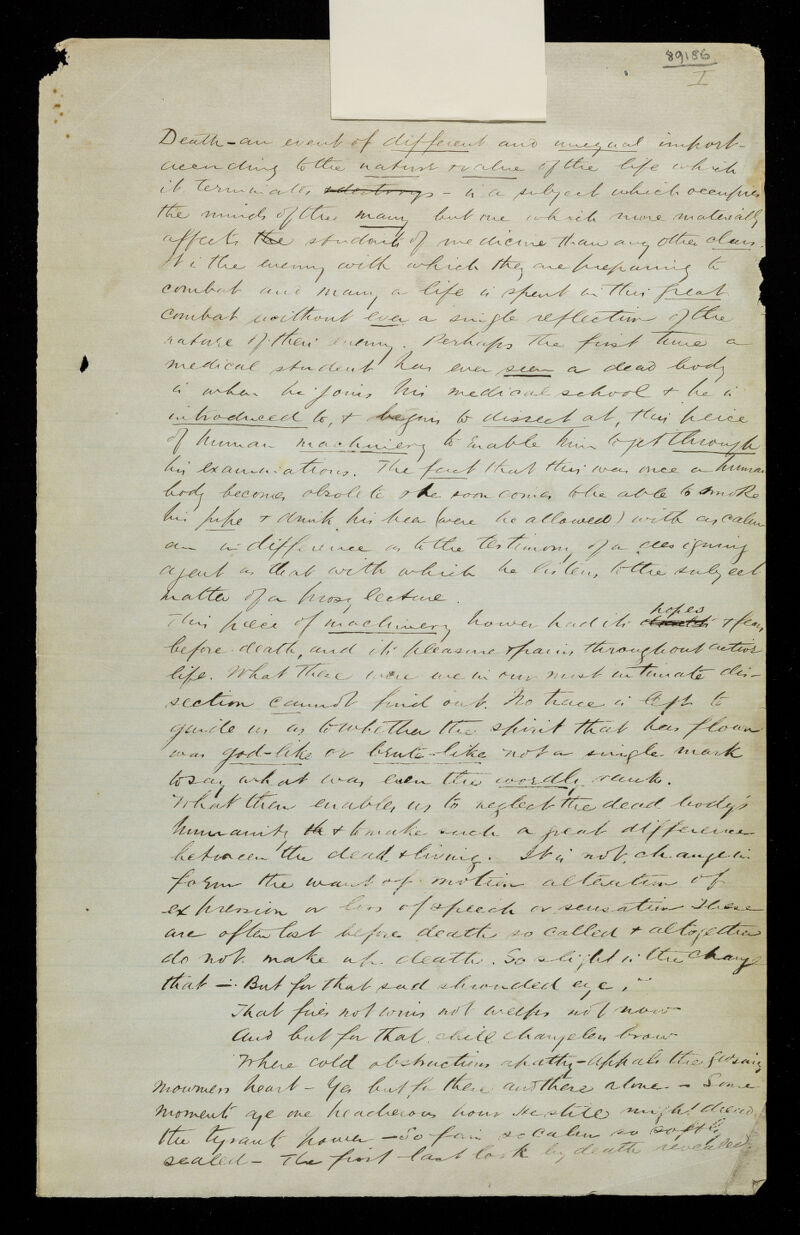 89186
I
Death - an event of different and unequal import -
according to the nature & value of the life which
it terminates - is a subject which occupies
the minds of the many but one which more materially
affects the students of medicine than any other class.
It is the enemy with which they are preparing to
combat and many a life is spent in this great
combat without even a single reflection of the
nature of their enemy. Perhaps the first time a
medical student has ever seen a dead body
is when he joins his medical school & he is
introduced to, & begins to dissect at, this peice
of human machinery to enable him to get through
his examinations. The fact that this was once a human
body becomes obsolete & he soon comes to be able to smoke
his pipe & drink his tea (were he allowed) with as calm
an indifference as to the testimony of a designing
agent as that with which he listens to the subject
matter of a prosy lecture.
This piece of machinery however had its hopes & fears
before death, and its pleasure & pains throughout active
life. What these were we in our most intimate dis-
section cannot find out. No trace is left to
guide us as to whether the spirit that has flown
was god-like or brute-like not a single mark
to say what was even the wordly rank.
What then enables us to neglect the dead body's
humanity & to make such a great difference
between the dead & living. It is not change in
form the want of motion alteration of
expression or loss of speech or sensation These
are often lost before death so called & altogether
do not make up death. So slight is the change
that - But for that sad shrouded eye,
That fires not wins not weeps not now
And but for that chill changeless brow
Where cold obstructions apathy - Appals the gazing
mourners heart - Yes but for these and these alone - Some
moments aye one treacherous hour He still might
the tyrants power - So fair so calm so softly
sealed - The first last look by death revealed